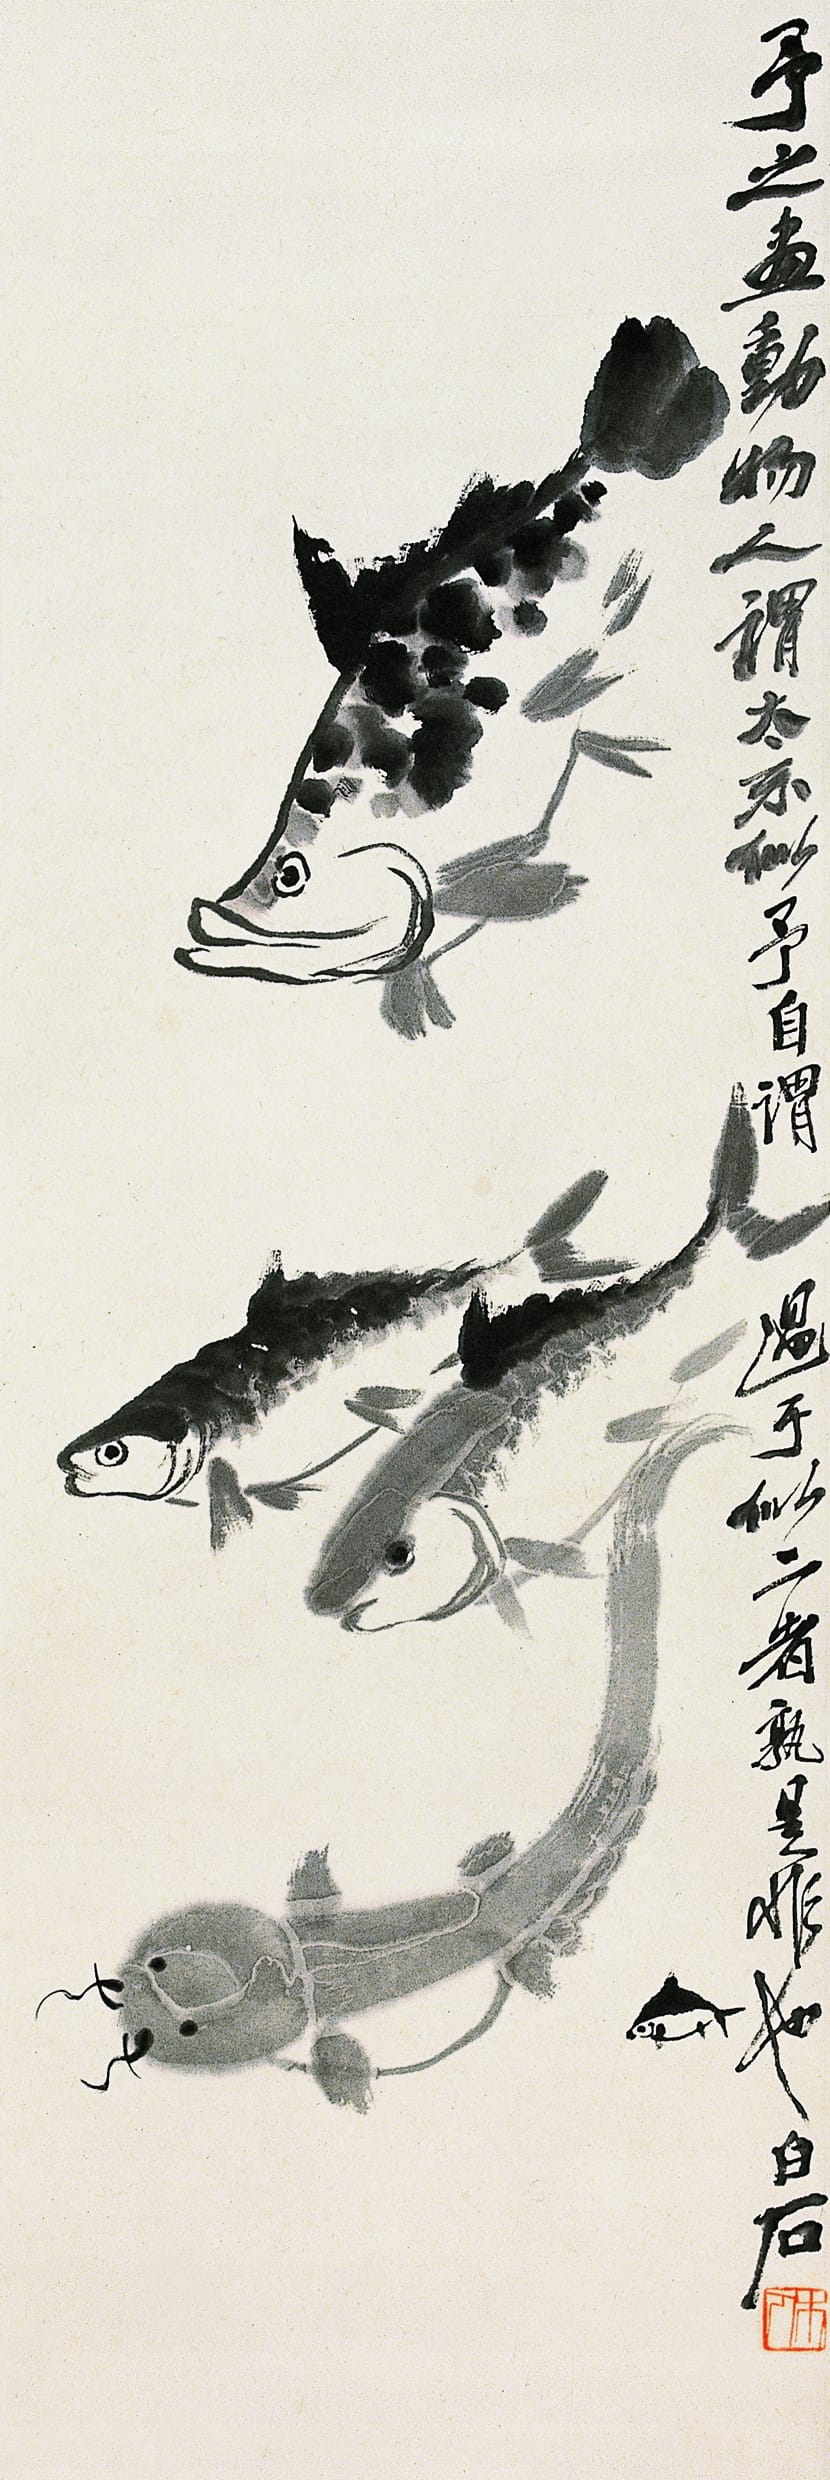 予之畫動物人謂太不似予自謂過于似二者孰是非也白石
木人